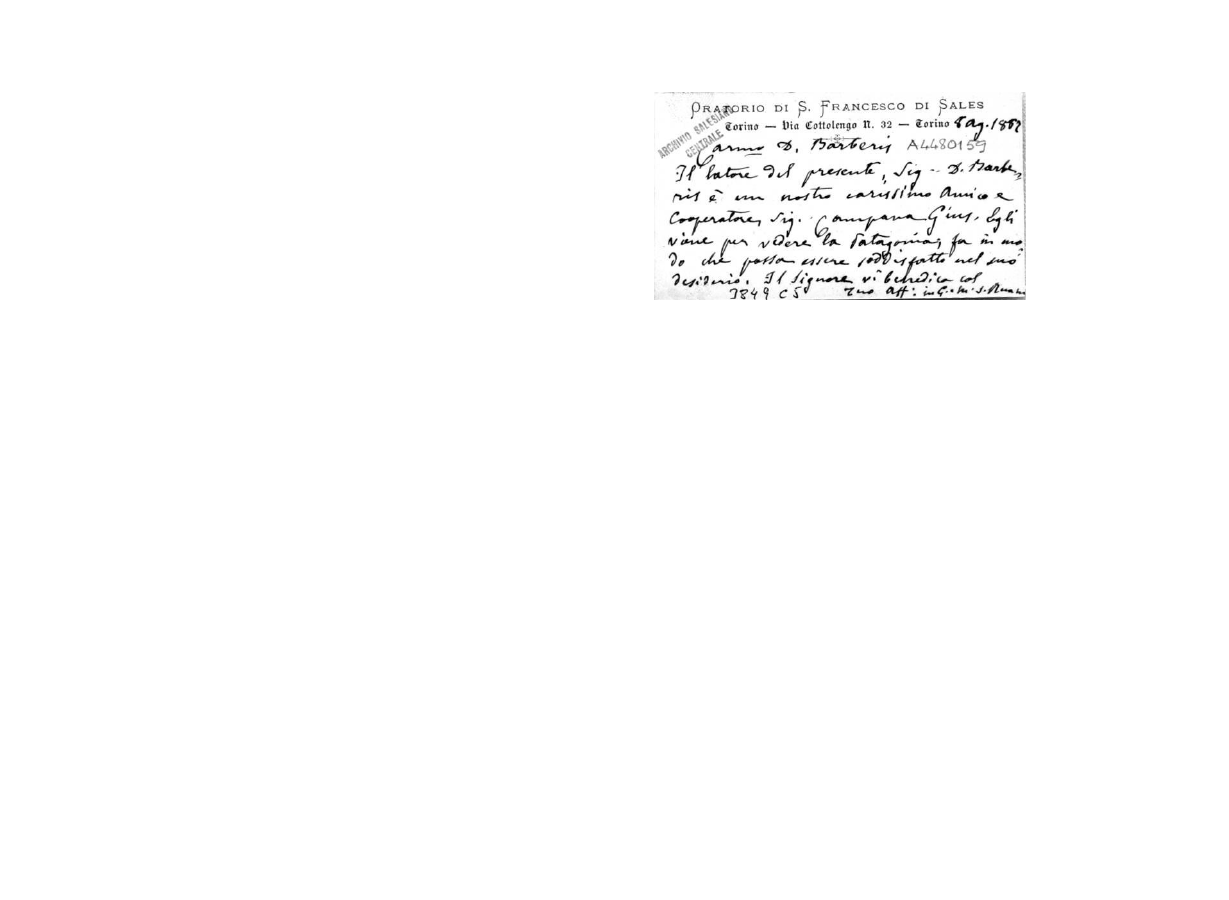 ORATORIO DI S. FRANCESCO DI SALES
Torino — Via Cottolengo N. 32 — Torino 8 Ag. 188
ARCHIVIO SALESIANO
CENTRALE
Carmo D. Barberis A4480159
Il latore del presente, Sig D. Barbe
ris è un nostro carissimo amico e
Cooperatore, Sig. Campana Gius. Egli
viene per vedere la Patagonia; fa in mo
do che possa essere soddisfatto nel suo
desiderio. Il Signore vi benedica col
3849 C5 tuo aff: in G. e M. S.